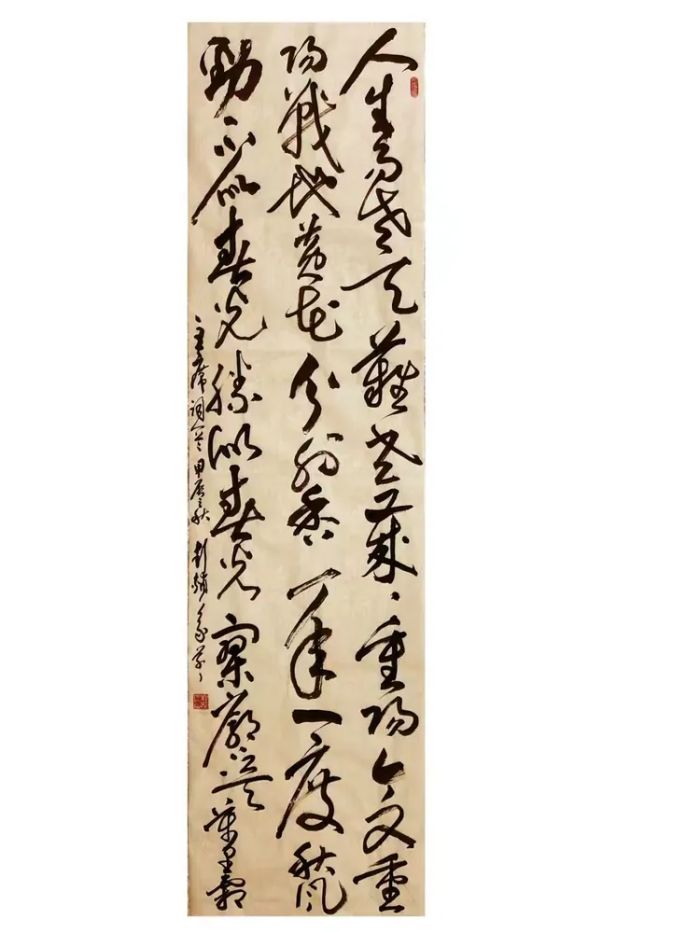 人生易老天難老歲、重陽今又重
陽戰地黃花分外香一年一度秋風
勁不似春光勝似春光寥廓江天萬里霜
主席詞一首甲辰之秋